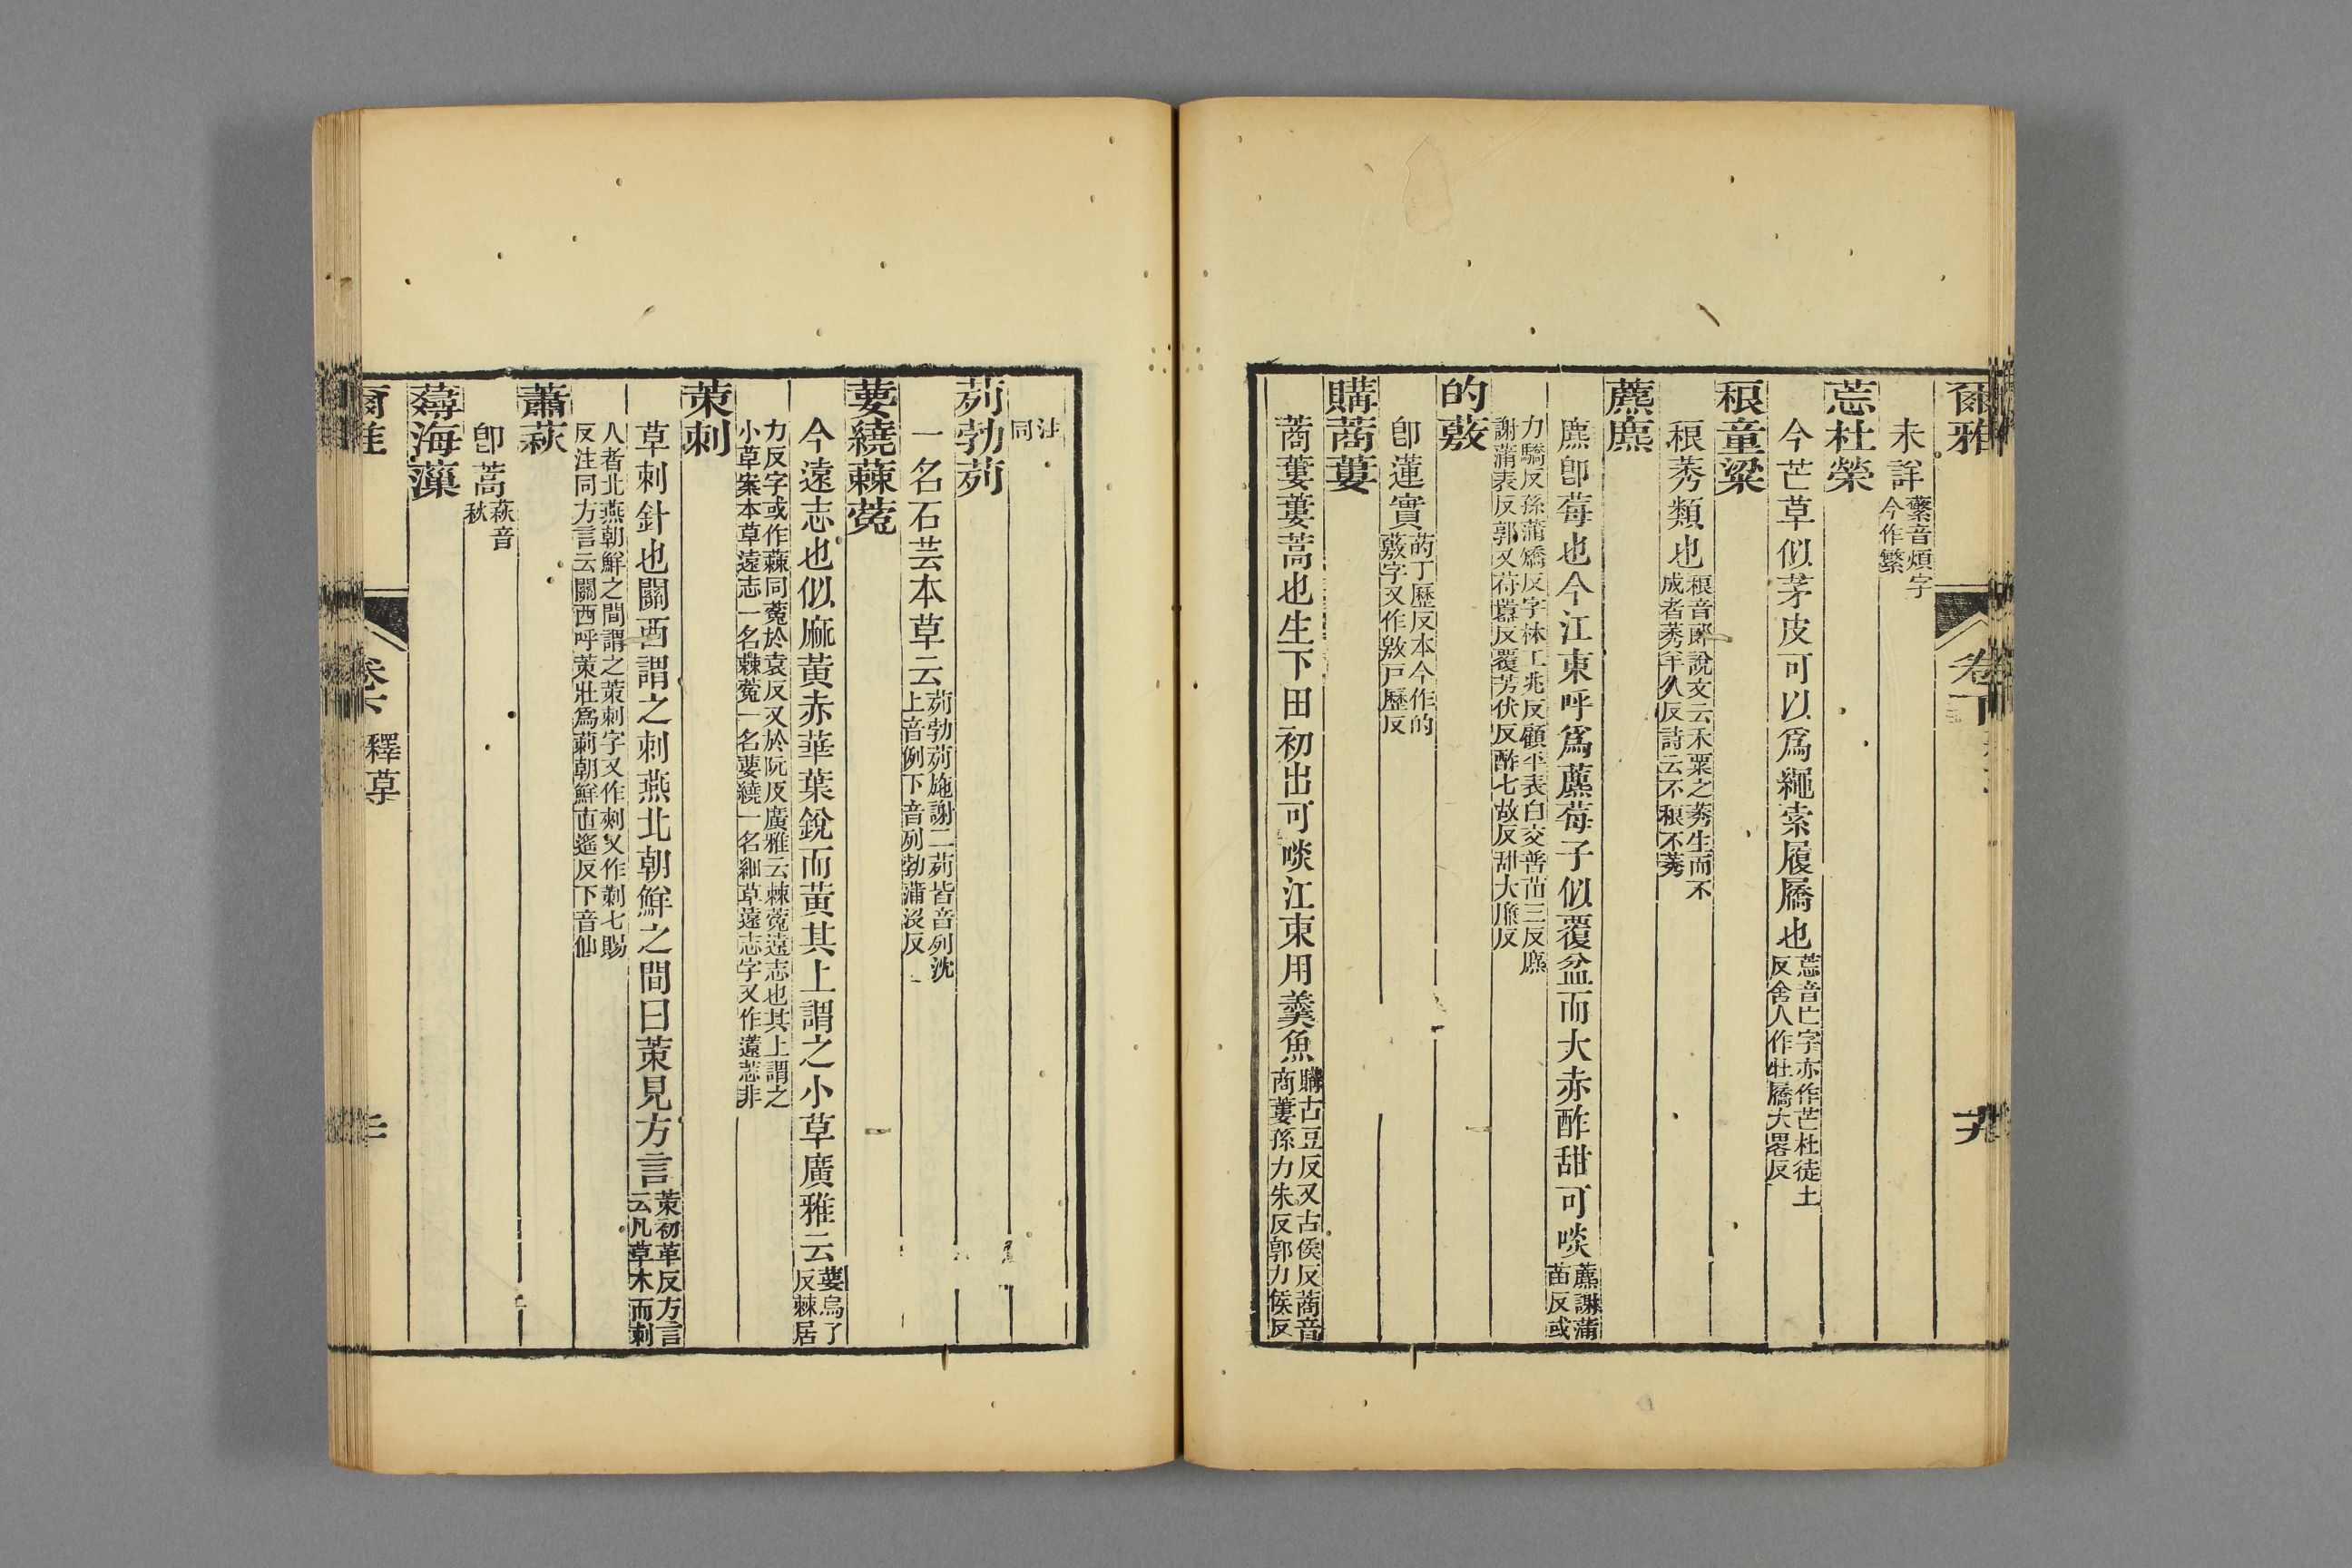 爾雅
卷下
九
未詳蘩音煩字今作繁
莣杜榮
今芒草似茅皮可以爲繩索履屩也莣音亡字亦作芒杜徒土反舍人作牡屩大畧反
稂童粱
稂莠類也稂音郎說文云禾粟之莠生而不成者莠羊久反詩云不稂不莠
藨麃
麃卽莓也今江東呼爲藨莓子似覆盆而大赤酢甜可啖藨謝蒲苗反或
力驕反孫蒲矯反字林工兆反顧平表白交普苗三反麃謝蒲表反郭又苻囂反覆芳伏反酢七故反甜大廉反
的薂
卽蓮實菂丁歷反本今作的薂字又作敫戶歷反
購蔏蔞
蔏蔞蔞蒿也生下田初出可啖江東用羹魚購古豆反又古侯反蔏音商蔞孫力朱反郭力侯反
注同
茢勃茢
一名石芸本草云茢勃茢施謝二茢皆音列沈上音例下音列勃蒲沒反
葽繞蕀蒬
今遠志也似麻黃赤華葉銳而黃其上謂之小草廣雅云葽烏了反蕀居
力反字或作蕀同蒬於袁反又於阮反廣雅云蕀蒬遠志也其上謂之小草案本草遠志一名蕀蒬一名葽繞一名細草遠志字又作薳莣非
茦刺
草刺針也關西謂之刺燕北朝鮮之間曰茦見方言茦初革反方言云凡草木而刺
人者北燕朝鮮之間謂之茦刺字又作刾又作莿七賜反注同方言云關西呼茦壯爲莿朝鮮直遙反下音仙
蕭萩
卽蒿萩音秋
薚海藻
爾雅
釋草